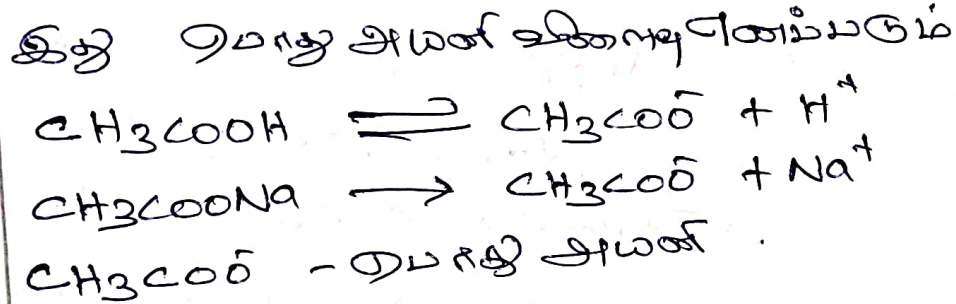 இது பொது அயனி விளைவு எனப்படும்
CH3COOH ⇌ CH3COO⁻ + H⁺
CH3COONa → CH3COO⁻ + Na⁺
CH3COO⁻ - பொது அயனி .